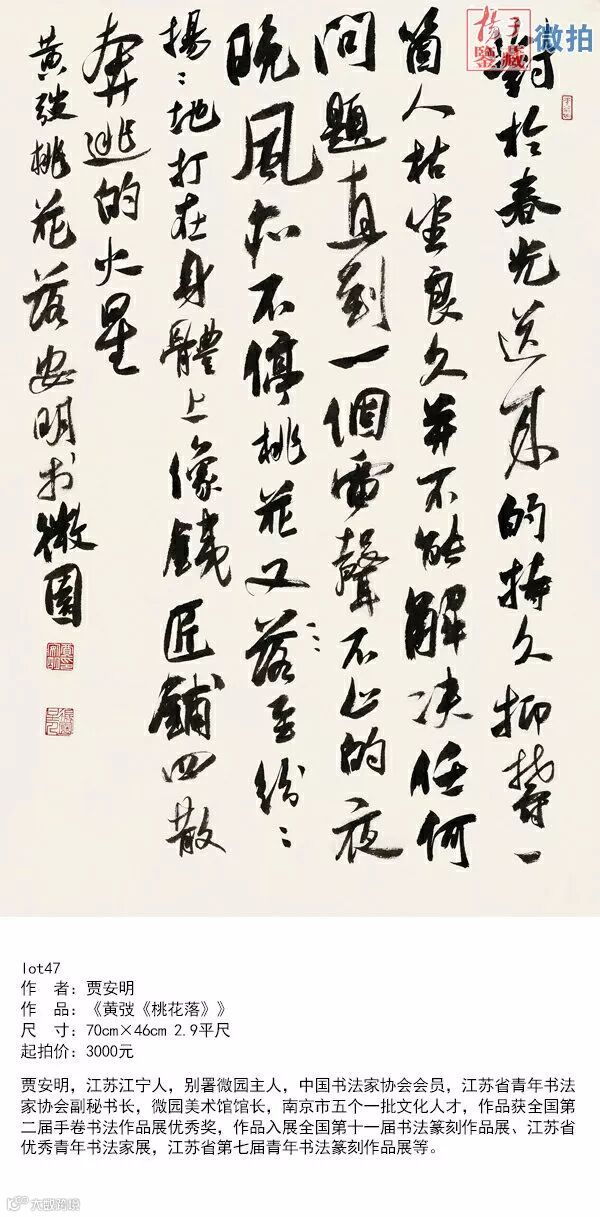 扬子鑒藏
微拍
對於春光送来的持久抑鬱一
箇人枯坐良久并不能解决任何
問題直到一個雷聲不止的夜
晚風亦不停桃花又落至纷〻
揚〻地打在身體上像鐵匠鋪四散
奔逃的火星
黄弢桃花落安明书微園
lot47
作 者：贾安明
作 品：《黄弢《桃花落》》
尺 寸：70cm×46cm 2.9平尺
起拍价：3000元
贾安明，江苏江宁人，别署微园主人，中国书法家协会会员，江苏省青年书法
家协会副秘书长，微园美术馆馆长，南京市五个一批文化人才，作品获全国第
二届手卷书法作品展优秀奖，作品入展全国第十一届书法篆刻作品展、江苏省
优秀青年书法家展，江苏省第七届青年书法篆刻作品展等。
大威跨境